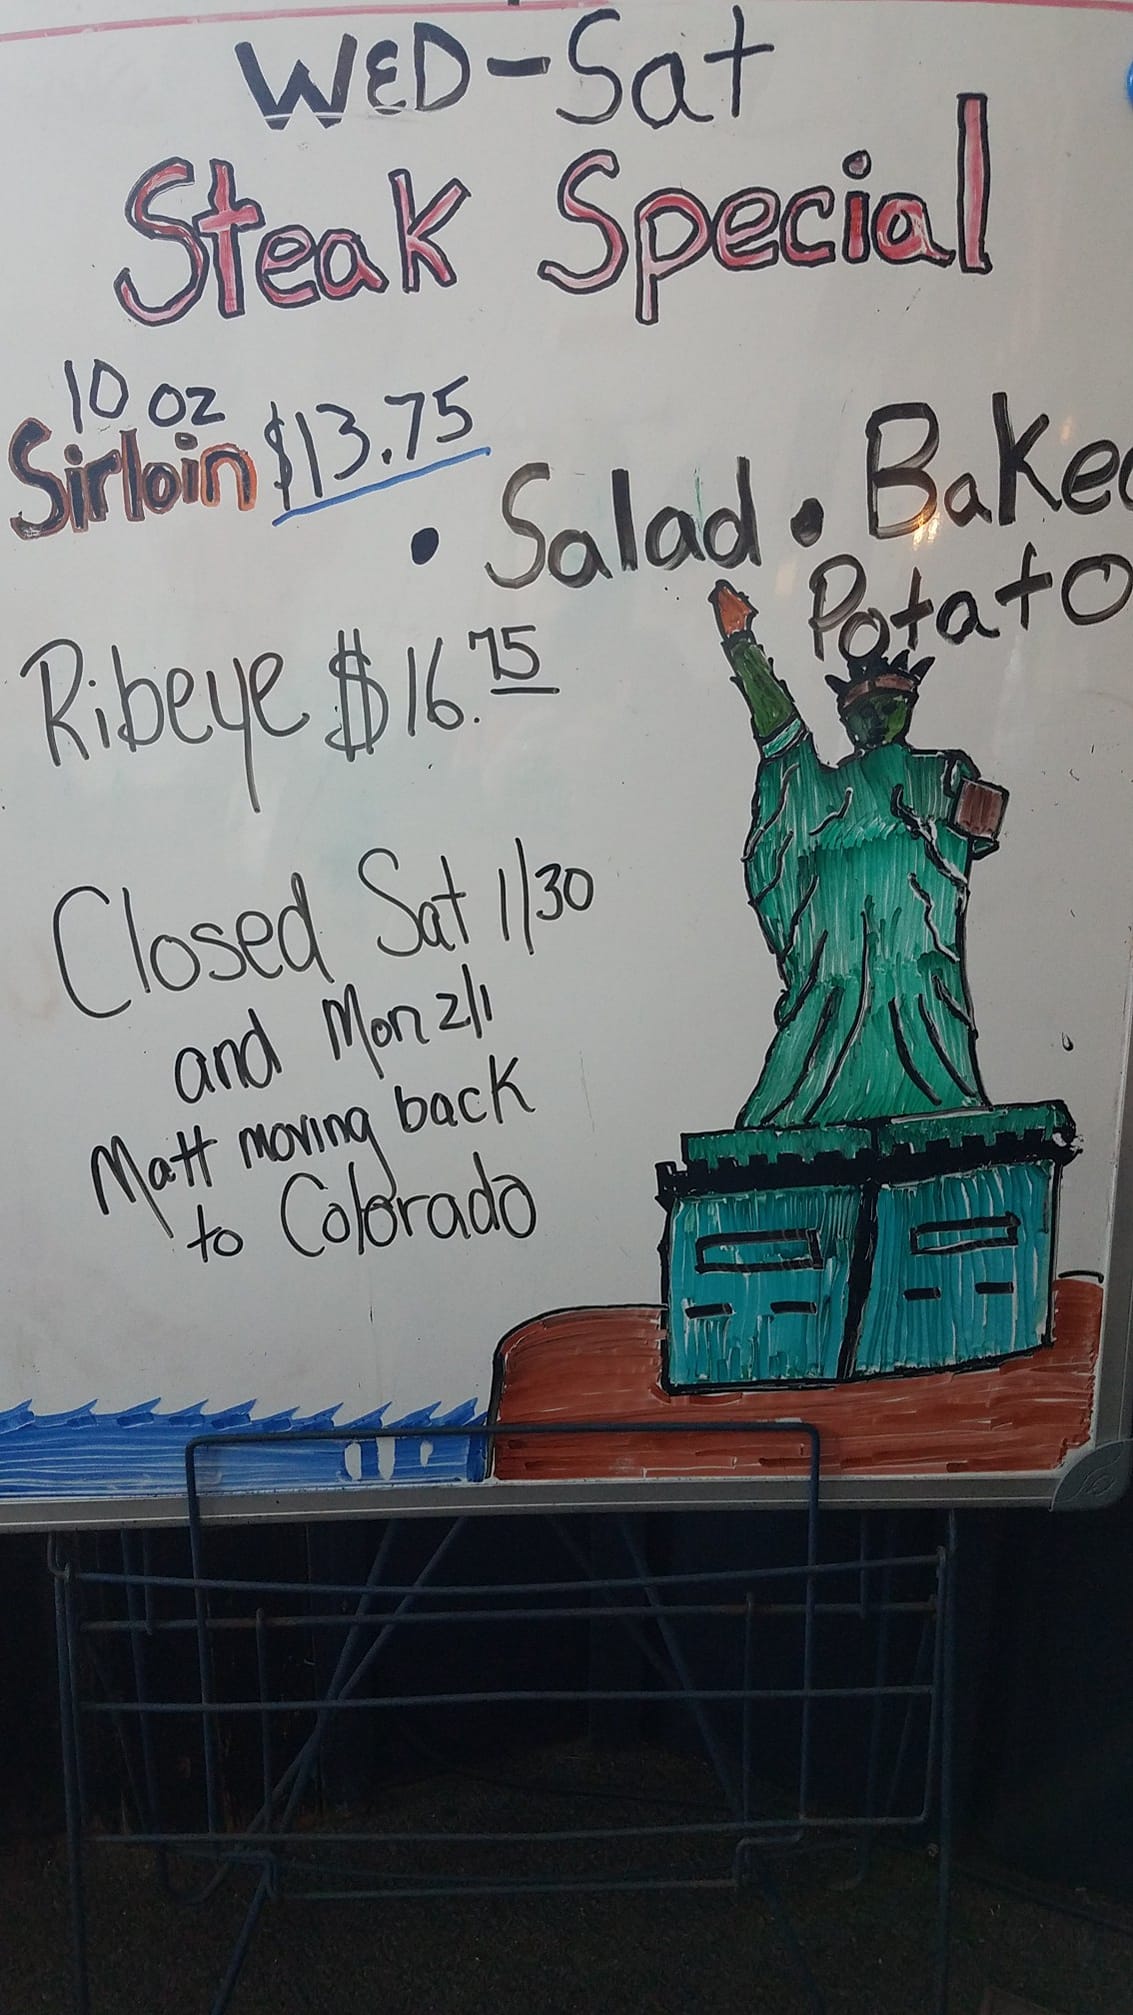 WED-Sat
Steak Special
10 oz
Sirloin $13.75
• Salad • Baked
Potato
Ribeye $16.75
Closed Sat 1/30
and Mon 2/1
Matt moving back
to Colorado